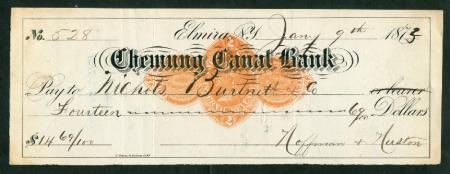 No. 528 Elmira, N.Y. Jany 9th 1873
Chemung Canal Bank
Pay to Nichols Burtnett & Co or bearer
Fourteen 69/100 Dollars
$14 69/100 Hoffman & Huston